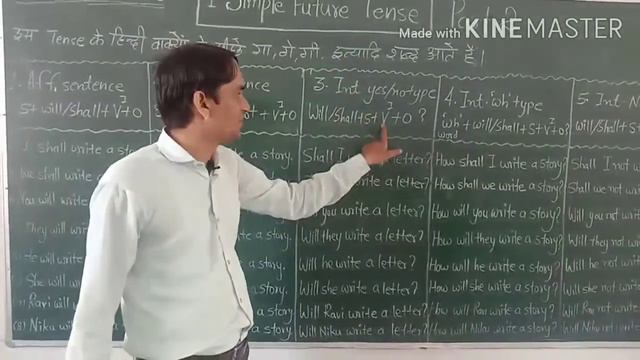 1 Simple Future Tense
Made with KINEMASTER
इस Tense के हिन्दी वाक्यों के पीछे गा, गे, गी इत्यादि शब्द आते हैं।
Aff. sentence
S+will/shall+V¹+O
shall write a
You will
They will write
He will write
She will write
Ravi will
(8) Niku
+V¹+O
a story.
a story.
story.
a story.
a story.
a story.
3. Int yes/no type
Will/Shall+S+V¹+O ?
Shall I a letter?
write a letter?
you write a letter?
Will they write a letter?
Will he write a letter?
Will she write a letter?
Will Ravi write a letter?
Will Niku write a letter?
4. Int. 'Wh' type
'Wh' + will/shall+S+V¹+O?
word
How shall I write a story?
How shall we write a story?
How will you write a story?
How will they write a story?
How will he write a story?
How will she write a story?
How will Ravi write a story?
How will Niku write a story?
5. Int.
Will/shall+S
Shall I not
Shall we not
Will you not
Will they not
Will he not
Will she not
Will Ravi not
Will Niku not